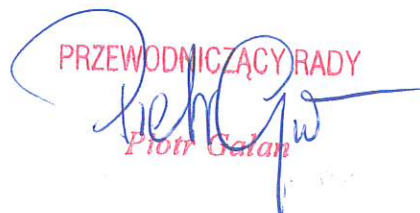 PRZEWODNICZĄCY RADY
Piotr Galan